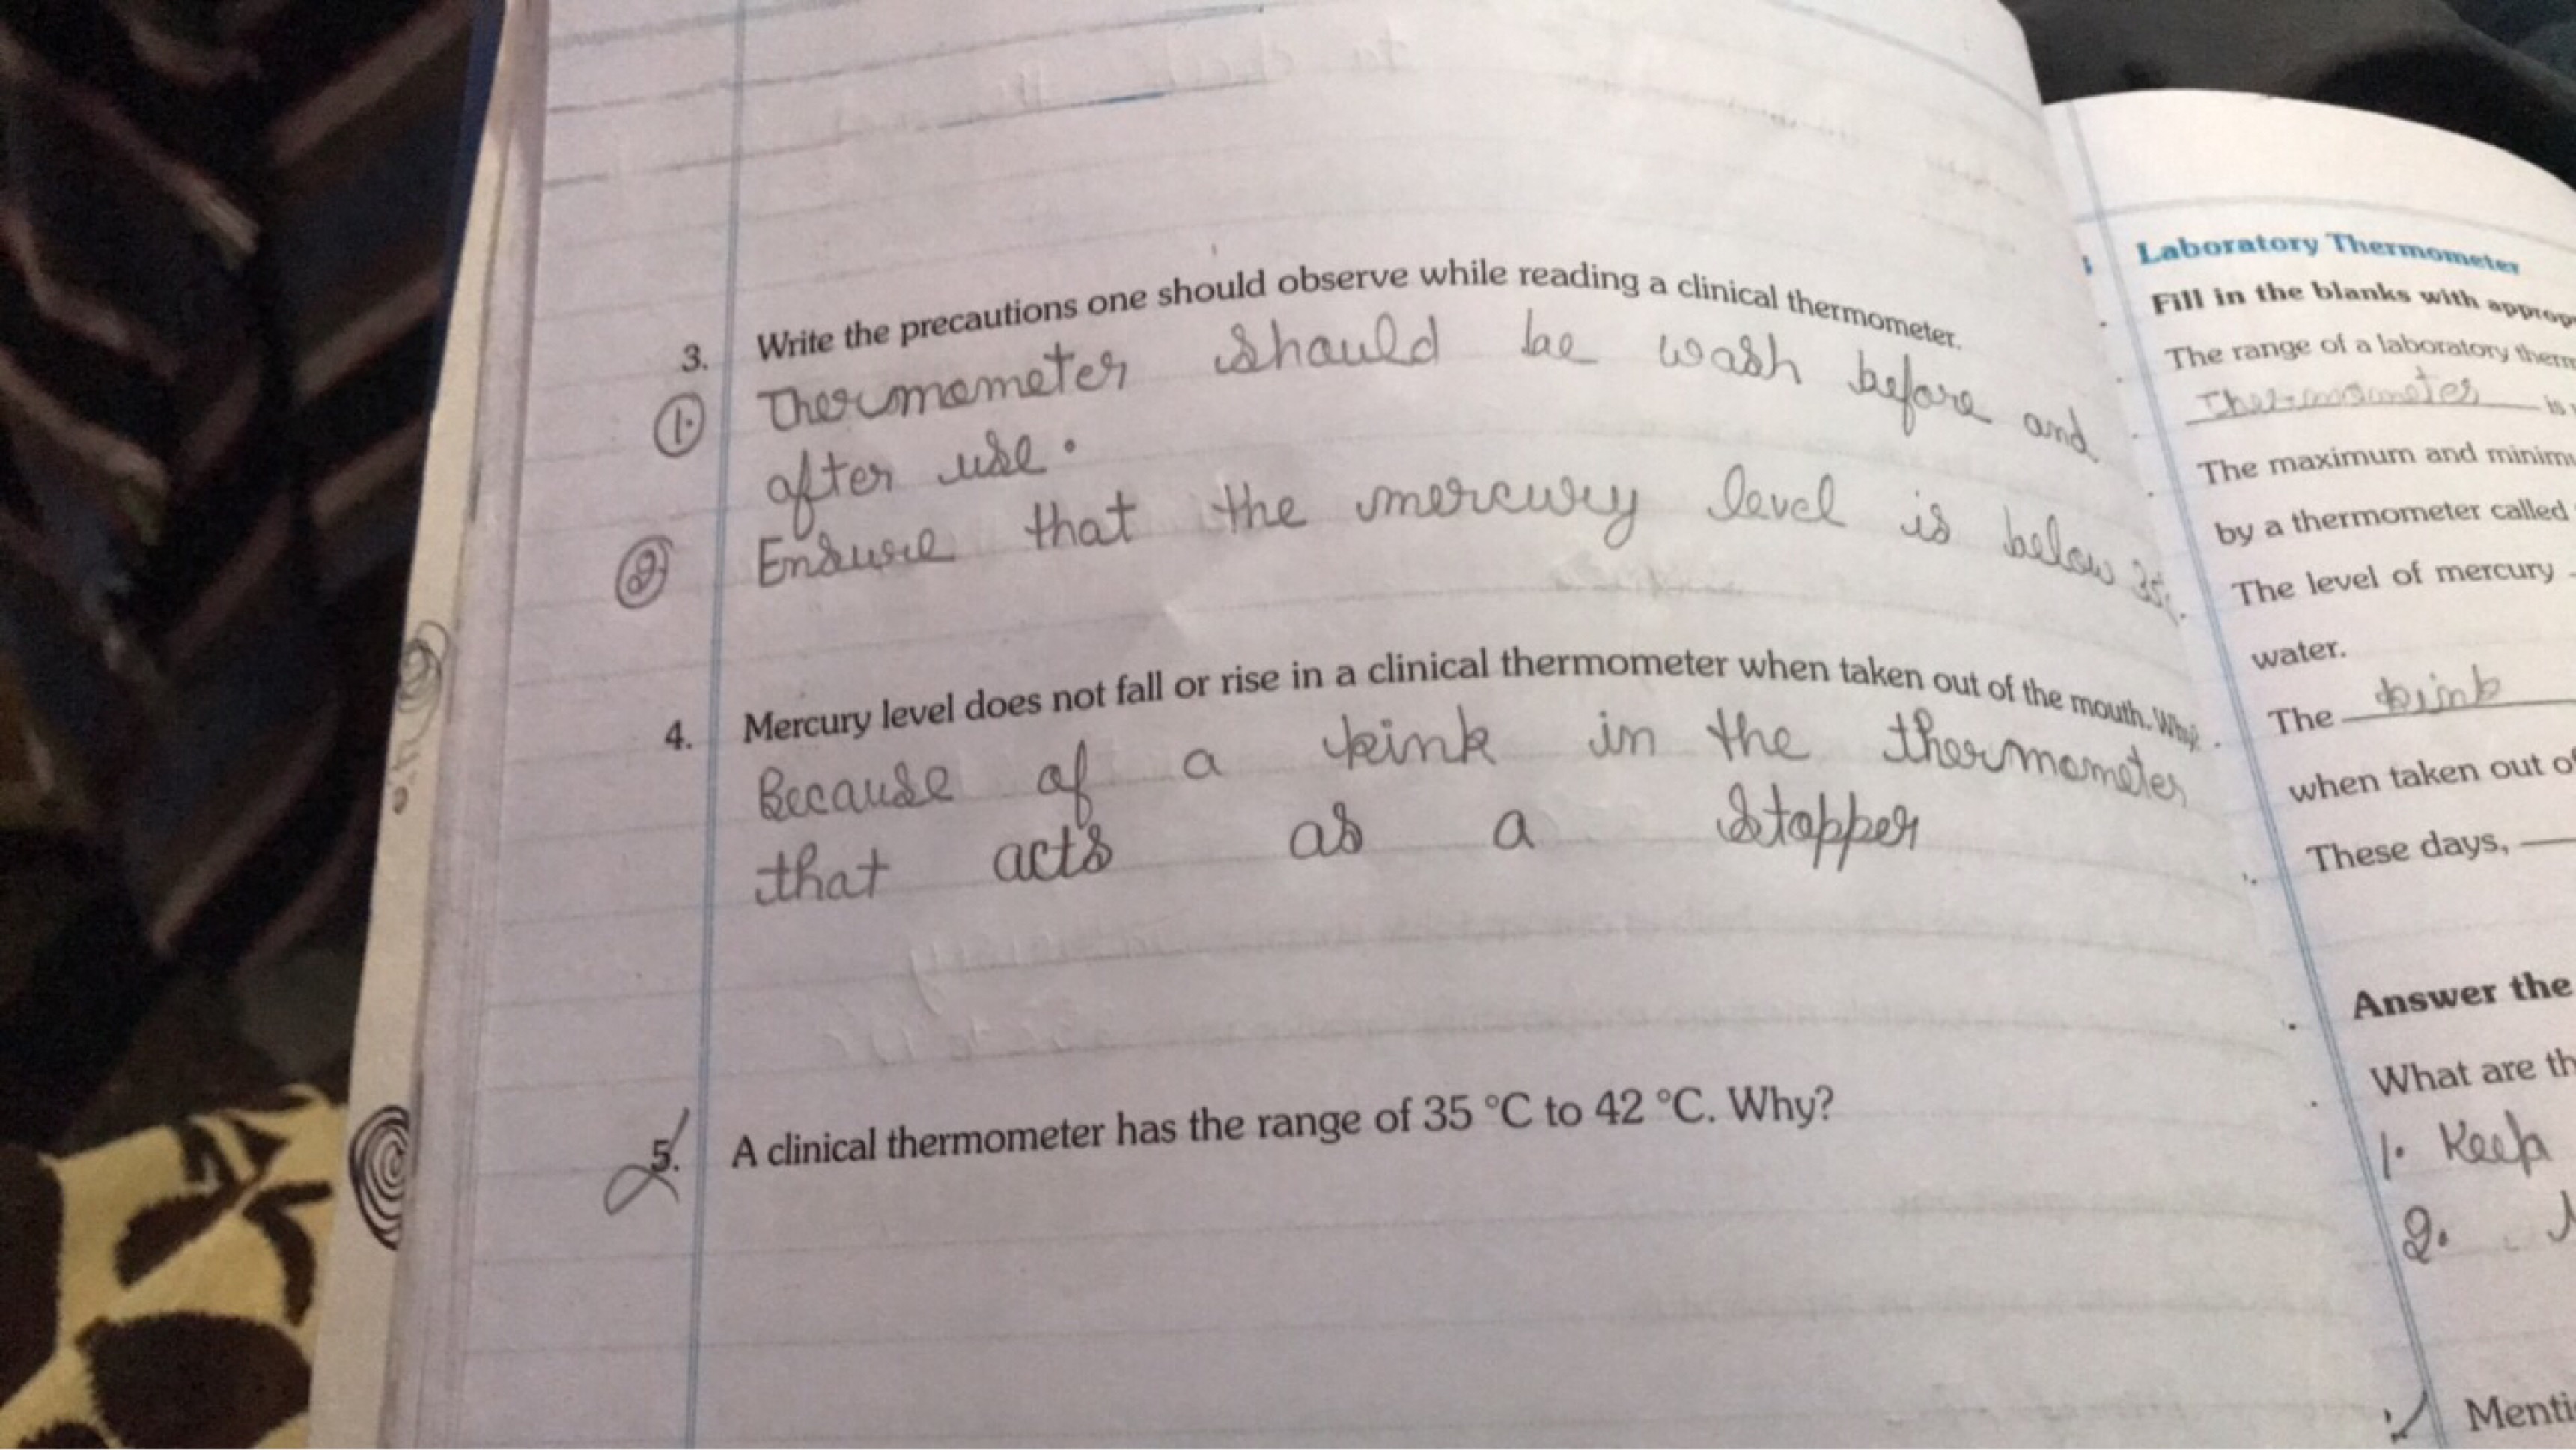 3. Write the precautions one should observe while reading a clinical thermometer.
1. Thermometer should be wash before and
after use.
2. Ensure that the mercury level is below 35°.
4. Mercury level does not fall or rise in a clinical thermometer when taken out of the mouth. Why?
Because of a kink in the thermometer
that acts as a stopper
5. A clinical thermometer has the range of 35 °C to 42 °C. Why?
Laboratory Thermometer
Fill in the blanks with approp
The range of a laboratory therm
Thermometer is
The maximum and minim
by a thermometer called
The level of mercury
water.
The kink
when taken out of
These days,
Answer the
What are th
1. Keep
2.
Menti